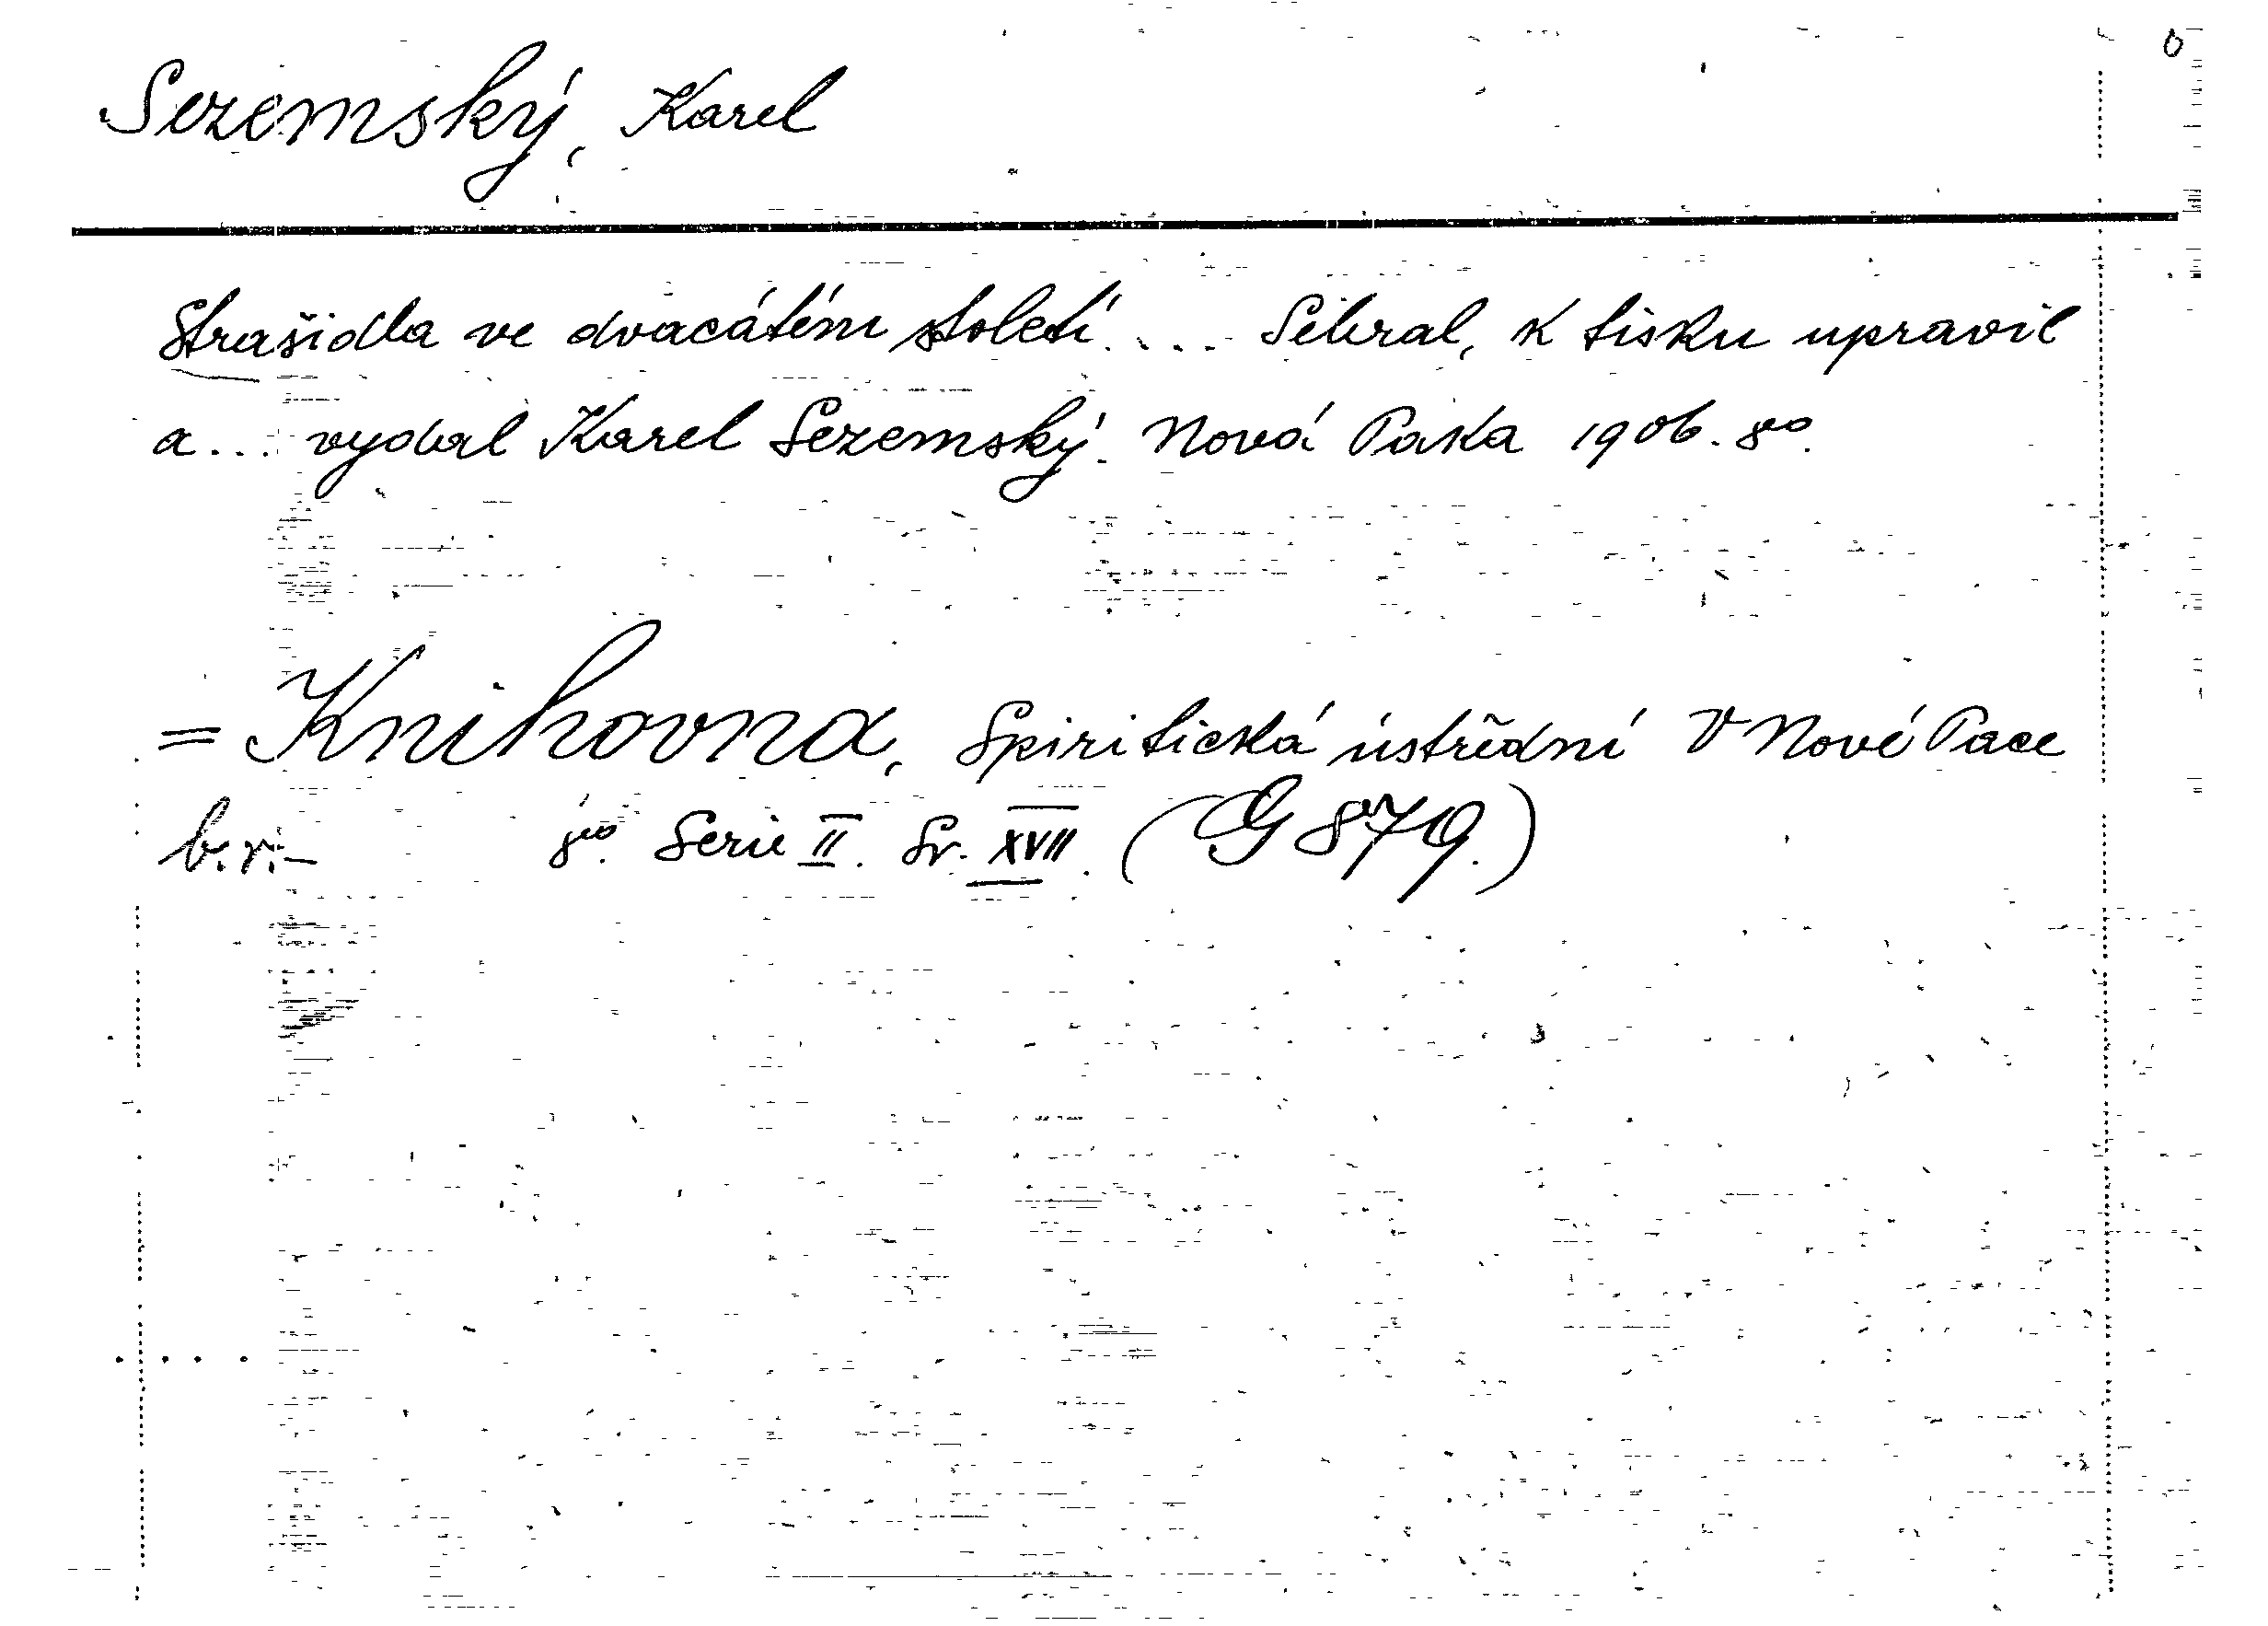 Sezemský, Karel
Strašidla ve dvacátém století.... Sebral, k tisku upravil
a... vydal Karel Sezemský. Nová Paka 1906. 8vo.
= Knihovna, Spiritická ústřední v Nové Pace
b.r.– 8vo. Serie II. Sv. XVII. (G 879.)